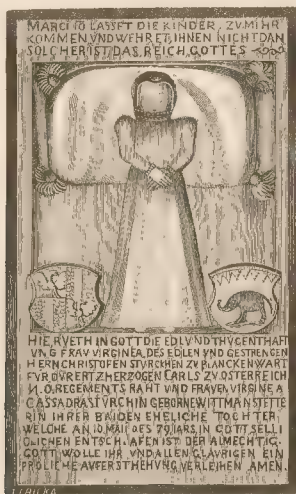 MARCI 10 LASSET DIE KINDER, ZV MIHR
KOMMEN VND WEHRET IHNEN NICHT DAN
SOLCHER IST DAS REICH, GOTTES
HIE RVETH IN GOTT DIE EDL VND THVGENTHAFT
IVNG FRAV VIRGINEA, DES EDLEN VND GESTRENGEN
HERN CHRISTOFEN STVRCKHEN ZV PLANCKENWART
FVR DVRERTZHERZOGEN CARLS ZV OSTEREICH
I. O. REGEMENTS RAHT VND FRAVEN, VIRGINE A
CASSADRA STVRCHIN GEBORNE WITTMANSTETTE
RIN IHRER BAIDEN EHELICHE TOCHTER
WELCHE AN 10 MAII DES 79 IARS, IN GOTT SELLI
GLICHEN ENTSCHLAFEN IST DER ALMECHTIG
GOTT WOLLE IHR VND ALLEN GLAVRIGEN EIN
FROLICHE AVFERSTHEHVNG VERLEIHEN AMEN.